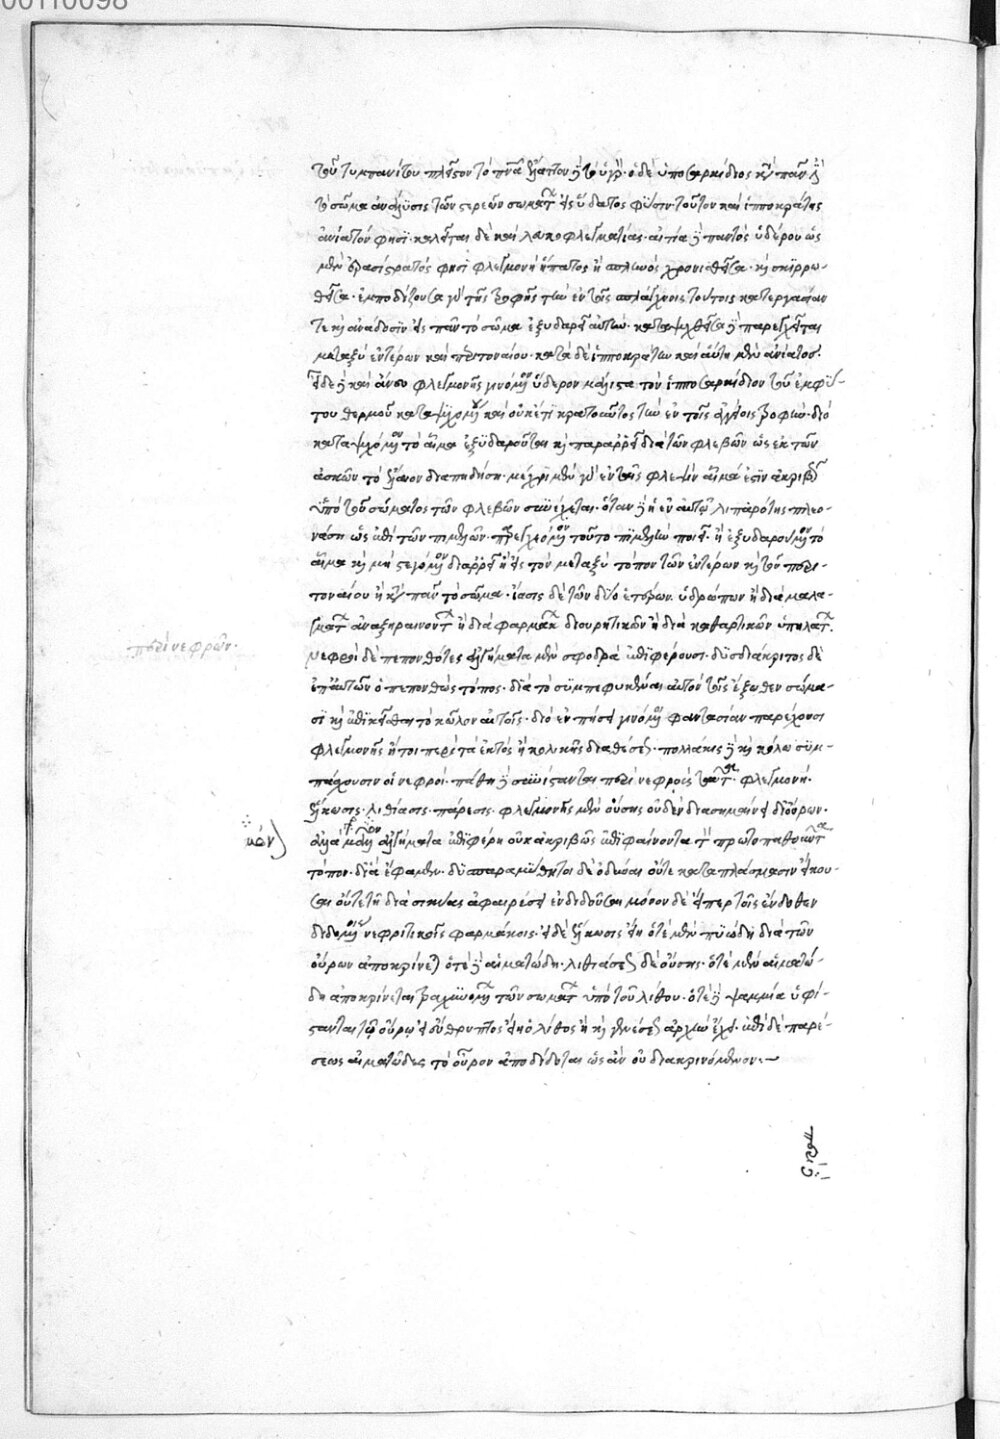 00110098
τοῦ τυμπανίτου πλεῖον τὸ πνεῦμα ἔλαττον δὲ τὸ ὑγρόν· ὁ δὲ ὑποσαρκίδιος κατὰ πᾶν
τὸ σῶμα ἀνάλυσις τῶν στερεῶν σωμάτων εἰς ὕδατος φύσιν· τοῦτον καὶ ἱπποκράτης
ἀνίατόν φησι· καλεῖται δὲ καὶ λευκοφλεγματίας· αἰτία δὲ παντὸς ὑδέρου ὡς
μὲν ἐρασίστρατός φησι φλεγμονὴ ἥπατος ἢ σπληνὸς χρονισθεῖσα· καὶ σκιρρω-
θεῖσα· ἐμποδίζουσα γὰρ τῆς τροφῆς τὴν ἐν τοῖς σπλάγχνοις τούτοις κατεργασίαν
τε καὶ ἀνάδοσιν εἰς πᾶν τὸ σῶμα ἐξυδαροῖ αὐτήν· καταψυχθεῖσα δὲ παρεγχεῖται
μεταξὺ ἐντέρων καὶ περιτοναίου· κατὰ δὲ ἱπποκράτην καὶ αὕτη μὲν ἀνίατος·
οἶδε δὲ καὶ ἄνευ φλεγμονῆς γινόμενον ὕδερον μάλιστα τὸν ὑποσαρκίδιον τοῦ ἐμφύ-
του θερμοῦ καταψυχομένου καὶ οὐκέτι κρατοῦντος τὴν ἐν τοῖς ἀγγείοις τροφήν· διὸ
καταψυχόμενον τὸ αἷμα ἐξυδαροῦται καὶ παραρρεῖ διὰ τῶν φλεβῶν ὡς ἐκ τῶν
ἀσκῶν τὸ ἔλαιον διαπηδήσῃ· μέχρι μὲν γὰρ ἐν ταῖς φλεψὶν αἷμά ἐστιν ἀκριβὲς
ὑπὸ τοῦ σώματος τῶν φλεβῶν συνέχεται· ὅταν δὲ ἡ ἐν αὐτῷ λιπαρότης πλεο-
νάσῃ ὡς ἐπὶ τῶν πιμελῶν· παρεγχεόμενον τοῦτο πιμελὴν ποιεῖ· ἢ ἐξυδαρούμενον τὸ
αἷμα καὶ μὴ στεγόμενον διαρρεῖ ἢ εἰς τὸν μεταξὺ τόπον τῶν ἐντέρων καὶ τοῦ περι-
τοναίου ἢ κατὰ πᾶν τὸ σῶμα· ἴασις δὲ τῶν δύο ἑτέρων ὑδρώπων ἢ διὰ μαλα-
γμάτων ἀναξηραινόντων ἢ διὰ φαρμάκων διουρητικῶν ἢ διὰ καθαρτικῶν ὑπηλάτων.
περὶ νεφρῶν·
νεφροὶ δὲ πεπονθότες ἀλγήματα μὲν σφοδρὰ ἐπιφέρουσι· δυσδιάκριτος δὲ
ἐπ' αὐτῶν ὁ πεπονθὼς τόπος· διὰ τὸ συμπεφυκέναι αὐτὸν τοῖς ἔξωθεν σώμα-
σι καὶ ἐπικεῖσθαι τὸ κῶλον αὐτοῖς· διὸ ἐν πείσει γινόμενοι φαντασίαν παρέχουσι
φλεγμονῆς ἤτοι περὶ τὰ ἐκτὸς ἢ κολικῆς διαθέσεως· πολλάκις δὲ καὶ κώλῳ συμ-
πάσχουσιν οἱ νεφροί· πάθη δὲ συνίστανται περὶ νεφροὺς ταῦτα· φλεγμονή·
ἕλκωσις· λιθίασις· πάρεσις· φλεγμονῆς μὲν οὔσης οὐδὲν διασημαίνει δι' οὔρων·
κἂν
ἀλλὰ μᾶλλον ἀλγήματα ἐπιφέρῃ οὐκ ἀκριβῶς ἐπιφαίνοντα τὸν πρωτοπαθοῦντα
τόπον· δι' ἃ ἔφαμεν· δυσπαραμύθητοι δὲ ὀδύναι οὔτε καταπλάσμασιν εἴκου-
σαι οὔτε τῇ διὰ σικύας ἀφαιρέσει ἐνδιδοῦσαι μόνον δὲ εἴπερ τοῖς ἔνδοθεν
διδομένοις νεφριτικοῖς φαρμάκοις· εἰ δὲ ἕλκωσις εἴη ὁτὲ μὲν πυώδη διὰ τῶν
οὔρων ἀποκρίνεται ὁτὲ δὲ αἱματώδη· λιθιάσεως δὲ οὔσης· ὁτὲ μὲν αἱματώ-
δη ἀποκρίνεται τραχυνομένων τῶν σωμάτων ὑπὸ τοῦ λίθου· ὁτὲ δὲ ψαμμία ὑφί-
σταται τῷ οὔρῳ εἰ εὔθρυπτος εἴη ὁ λίθος ἢ καὶ γενέσεως ἀρχὴν ἔχει· ἐπὶ δὲ παρέ-
σεως αἱματῶδες τὸ οὖρον ἀποδίδοται ὡς ἂν οὐ διακρινόμενον·